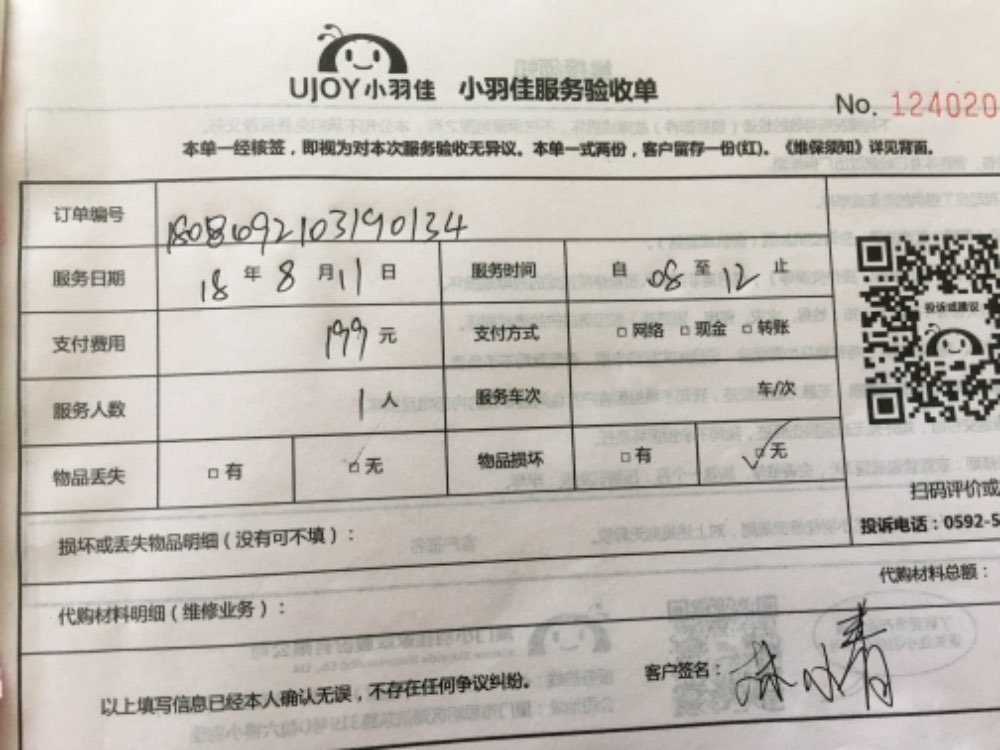 UJOY小羽佳 小羽佳服务验收单
No. 124020
本单一经核签，即视为对本次服务验收无异议。本单一式两份，客户留存一份(红)。《维保须知》详见背面。
订单编号 1808692103190134
服务日期 18 年 8 月 11 日 服务时间 自 08 至 12 止
投诉或建议
支付费用 199 元 支付方式 □网络 □现金 □转账
服务人数 1 人 服务车次 车/次
物品丢失 □有 □无 物品损坏 □有 □无
扫码评价或
投诉电话：0592-5
损坏或丢失物品明细（没有可不填）：
代购材料总额：
代购材料明细（维修业务）：
以上填写信息已经本人确认无误，不存在任何争议纠纷。 客户签名：